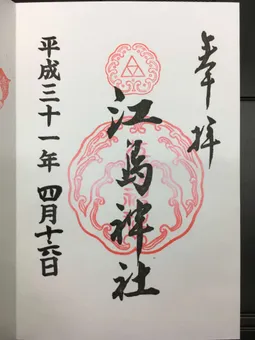 奉拝
江島神社
平成三十一年 四月十六日